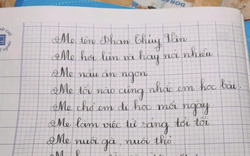 Mẹ tên Phan Thúy Vân
Mẹ hơi lùn và hay nói nhiều
Mẹ nấu ăn ngon
Mẹ tối nào cũng nhắc em học bài
Mẹ chở em đi học mỗi ngày
Mẹ làm việc từ sáng tới tối
Mẹ nuôi gà, nuôi thỏ